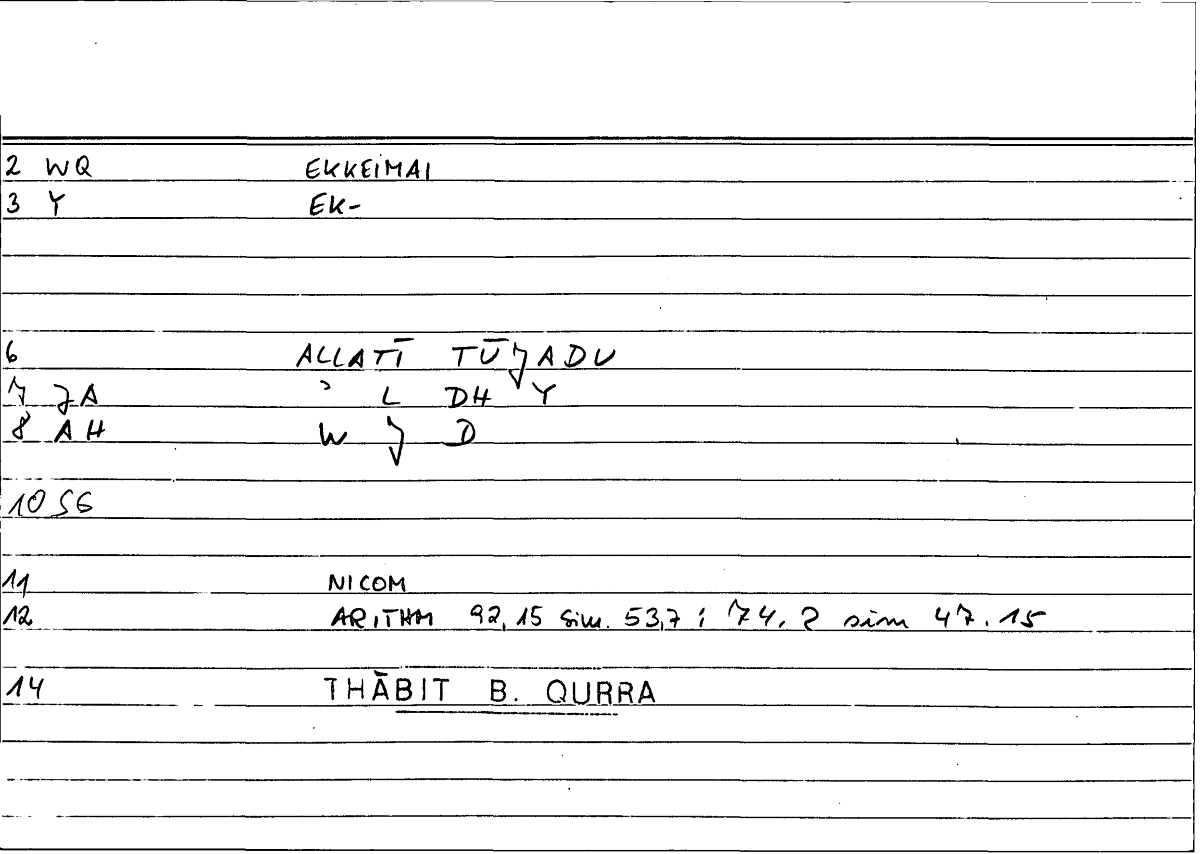 2 WQ EKKEIMAI
3 Y EK-
6 ALLATĪ TŪJADU
7 JA ʾ L DH Y
8 AH W J D
10 SG
11 NICOM
12 ARITHM 92,15 sim. 53,7; 74.2 sim 47.15
14 THĀBIT B. QURRA